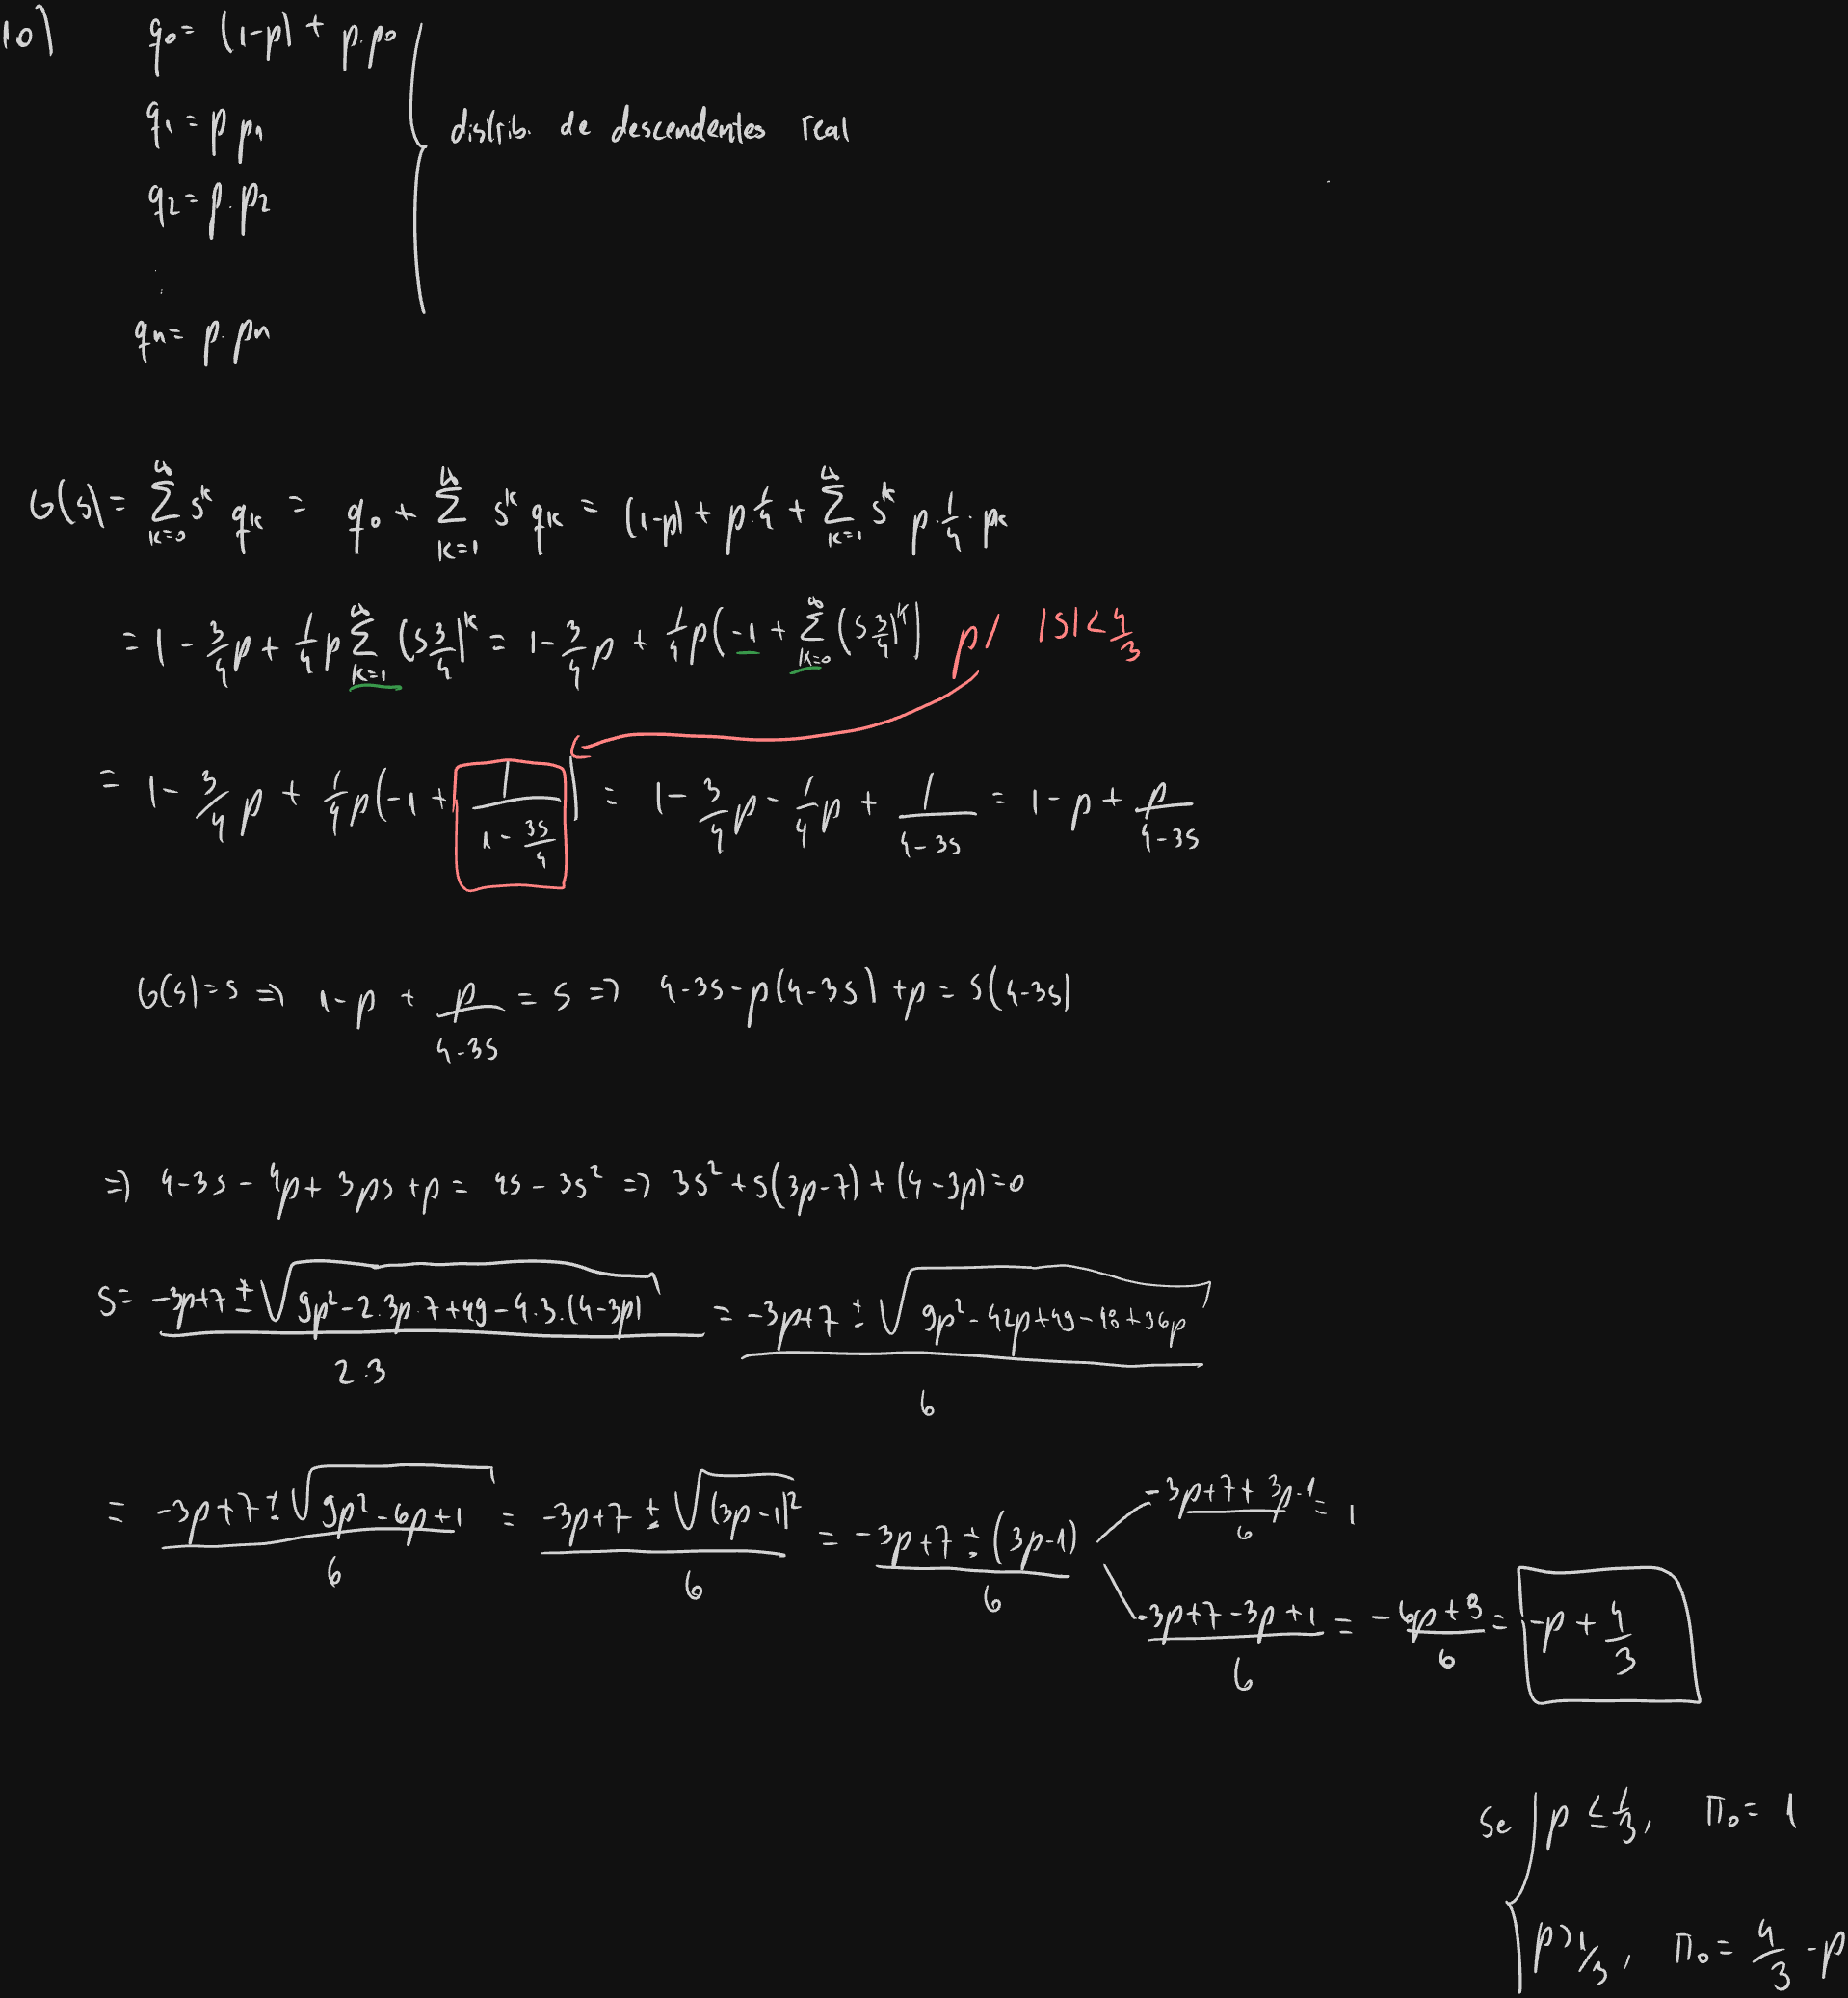 10)
q₀ = (1-p) + p.p₀
q₁ = p p₁
distrib. de descendentes real
q₂ = p.p₂
qₙ = p.pₙ
G(s) = ∑_{k=0}^{∞} s^k q_k = q₀ + ∑_{k=1}^{∞} s^k q_k = (1-p) + p.1/4 + ∑_{k=1}^{∞} s^k p.1/4.p_k
= 1 - 3/4 p + 1/4 p ∑_{k=1}^{∞} (s 3/4)^k = 1 - 3/4 p + 1/4 p (-1 + ∑_{k=0}^{∞} (s 3/4)^k) p/ |s| < 4/3
= 1 - 3/4 p + 1/4 p (-1 + 1/(1 - 3s/4)) = 1 - 3/4 p - 1/4 p + 1/(4-3s) = 1 - p + p/(4-3s)
G(s) = s => 1-p + p/(4-3s) = s => 4-3s-p(4-3s) + p = s(4-3s)
=> 4-3s-4p+3ps+p = 4s-3s² => 3s²+s(3p-7)+(4-3p)=0
s = (-3p+7 ± √(9p²-2.3p.7+49-4.3.(4-3p)))/2.3 = (-3p+7 ± √(9p²-42p+49-48+36p))/6
= (-3p+7 ± √(9p²-6p+1))/6 = (-3p+7 ± √((3p-1)²))/6 = (-3p+7 ± (3p-1))/6
(-3p+7+3p-1)/6 = 1
(-3p+7-3p+1)/6 = (-6p+8)/6 = -p + 4/3
Se p ≤ 1/3, Π₀ = 1
p > 1/3, Π₀ = 4/3 - p